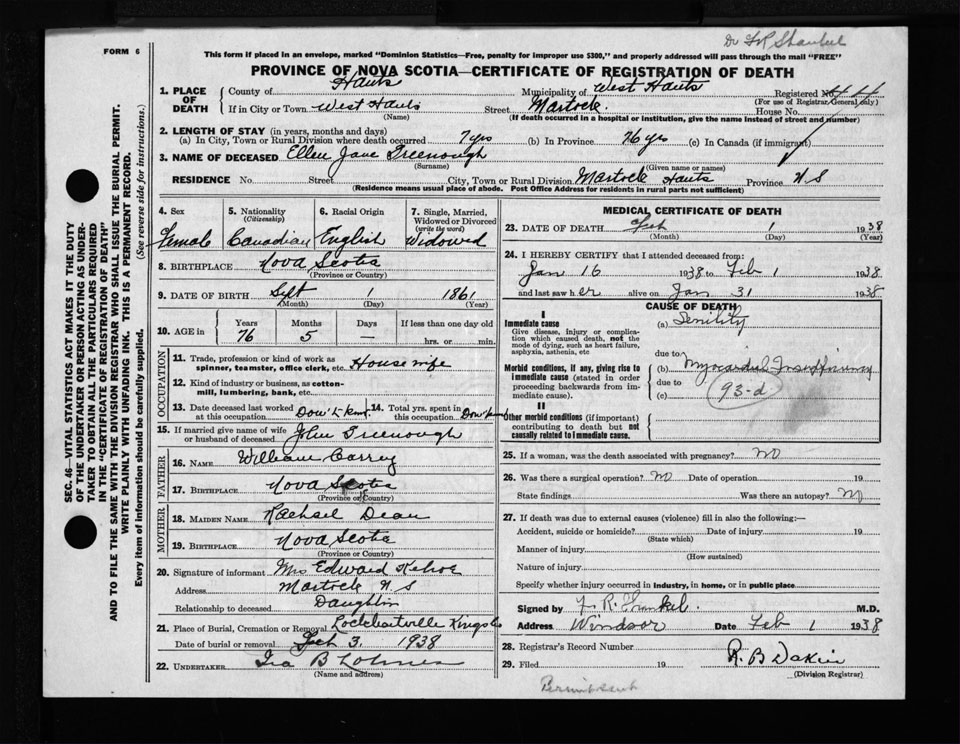 Dr F R Shankel
FORM 6
This form if placed in an envelope, marked "Dominion Statistics—Free, penalty for improper use $300," and properly addressed will pass through the mail "FREE"
PROVINCE OF NOVA SCOTIA—CERTIFICATE OF REGISTRATION OF DEATH
SEC. 46—VITAL STATISTICS ACT MAKES IT THE DUTY
OF THE UNDERTAKER OR PERSON ACTING AS UNDER-
TAKER TO OBTAIN ALL THE PARTICULARS REQUIRED
IN THE "CERTIFICATE OF REGISTRATION OF DEATH"
AND TO FILE THE SAME WITH THE DIVISION REGISTRAR WHO SHALL ISSUE THE BURIAL PERMIT.
WRITE PLAINLY WITH UNFADING INK. THIS IS A PERMANENT RECORD.
Every item of information should be carefully supplied. (See reverse side for instructions.)
1. PLACE OF DEATH County of Hants Municipality of West Hants Registered No. 44
(For use of Registrar General only)
If in City or Town West Hants Street Martock House No.
(Name) (If death occurred in a hospital or institution, give the name instead of street and number)
2. LENGTH OF STAY (in years, months and days)
(a) In City, Town or Rural Division where death occurred 7 yrs (b) In Province 76 yrs (c) In Canada (if immigrant)
3. NAME OF DECEASED Ellen Jane Greenough
(Surname) (Given name or names)
RESIDENCE No. Street City, Town or Rural Division Martock Hants Province N S
(Residence means usual place of abode. Post Office Address for residents in rural parts not sufficient)
4. Sex 5. Nationality (Citizenship) 6. Racial Origin 7. Single, Married, Widowed or Divorced (write the word)
Female Canadian English Widowed
8. BIRTHPLACE Nova Scotia
(Province or Country)
9. DATE OF BIRTH Sept 1 1861
(Month) (Day) (Year)
10. AGE in Years Months Days If less than one day old
76 5 — hrs. or min.
OCCUPATION
11. Trade, profession or kind of work as spinner, teamster, office clerk, etc. Housewife
12. Kind of industry or business, as cotton-mill, lumbering, bank, etc.
13. Date deceased last worked at this occupation Don't know 14. Total yrs. spent in this occupation Don't know
15. If married give name of wife or husband of deceased John Greenough
FATHER
16. NAME William Carrey
17. BIRTHPLACE Nova Scotia
(Province or Country)
MOTHER
18. MAIDEN NAME Rachael Dean
19. BIRTHPLACE Nova Scotia
(Province or Country)
20. Signature of informant Mrs Edward Kehoe
Address Martock N S
Relationship to deceased Daughter
21. Place of Burial, Cremation or Removal Lockhartville Kings Co
Date of burial or removal Feb 3. 1938
22. UNDERTAKER Ira B Lohnes
(Name and address)
MEDICAL CERTIFICATE OF DEATH
23. DATE OF DEATH Feb 1 1938
(Month) (Day) (Year)
24. I HEREBY CERTIFY that I attended deceased from:
Jan 16 1938 to Feb 1 1938
and last saw her alive on Jan 31 1938
CAUSE OF DEATH
I
Immediate cause (a) Senility
Give disease, injury or complication which caused death, not the mode of dying, such as heart failure, asphyxia, asthenia, etc
due to
Morbid conditions, if any, giving rise to immediate cause (stated in order proceeding backwards from immediate cause).
(b) Myocardial Insufficiency
due to
(c)
93-d
II
Other morbid conditions (if important) contributing to death but not causally related to immediate cause.
25. If a woman, was the death associated with pregnancy? No
26. Was there a surgical operation? No Date of operation 19
State findings Was there an autopsy? No
27. If death was due to external causes (violence) fill in also the following:—
Accident, suicide or homicide? Date of injury 19
(State which)
Manner of injury
(How sustained)
Nature of injury
Specify whether injury occurred in industry, in home, or in public place
Signed by F. R. Shankel. M.D.
Address Windsor Date Feb 1 1938
28. Registrar's Record Number
29. Filed 19 R. B Dakin
(Division Registrar)
Permit sent